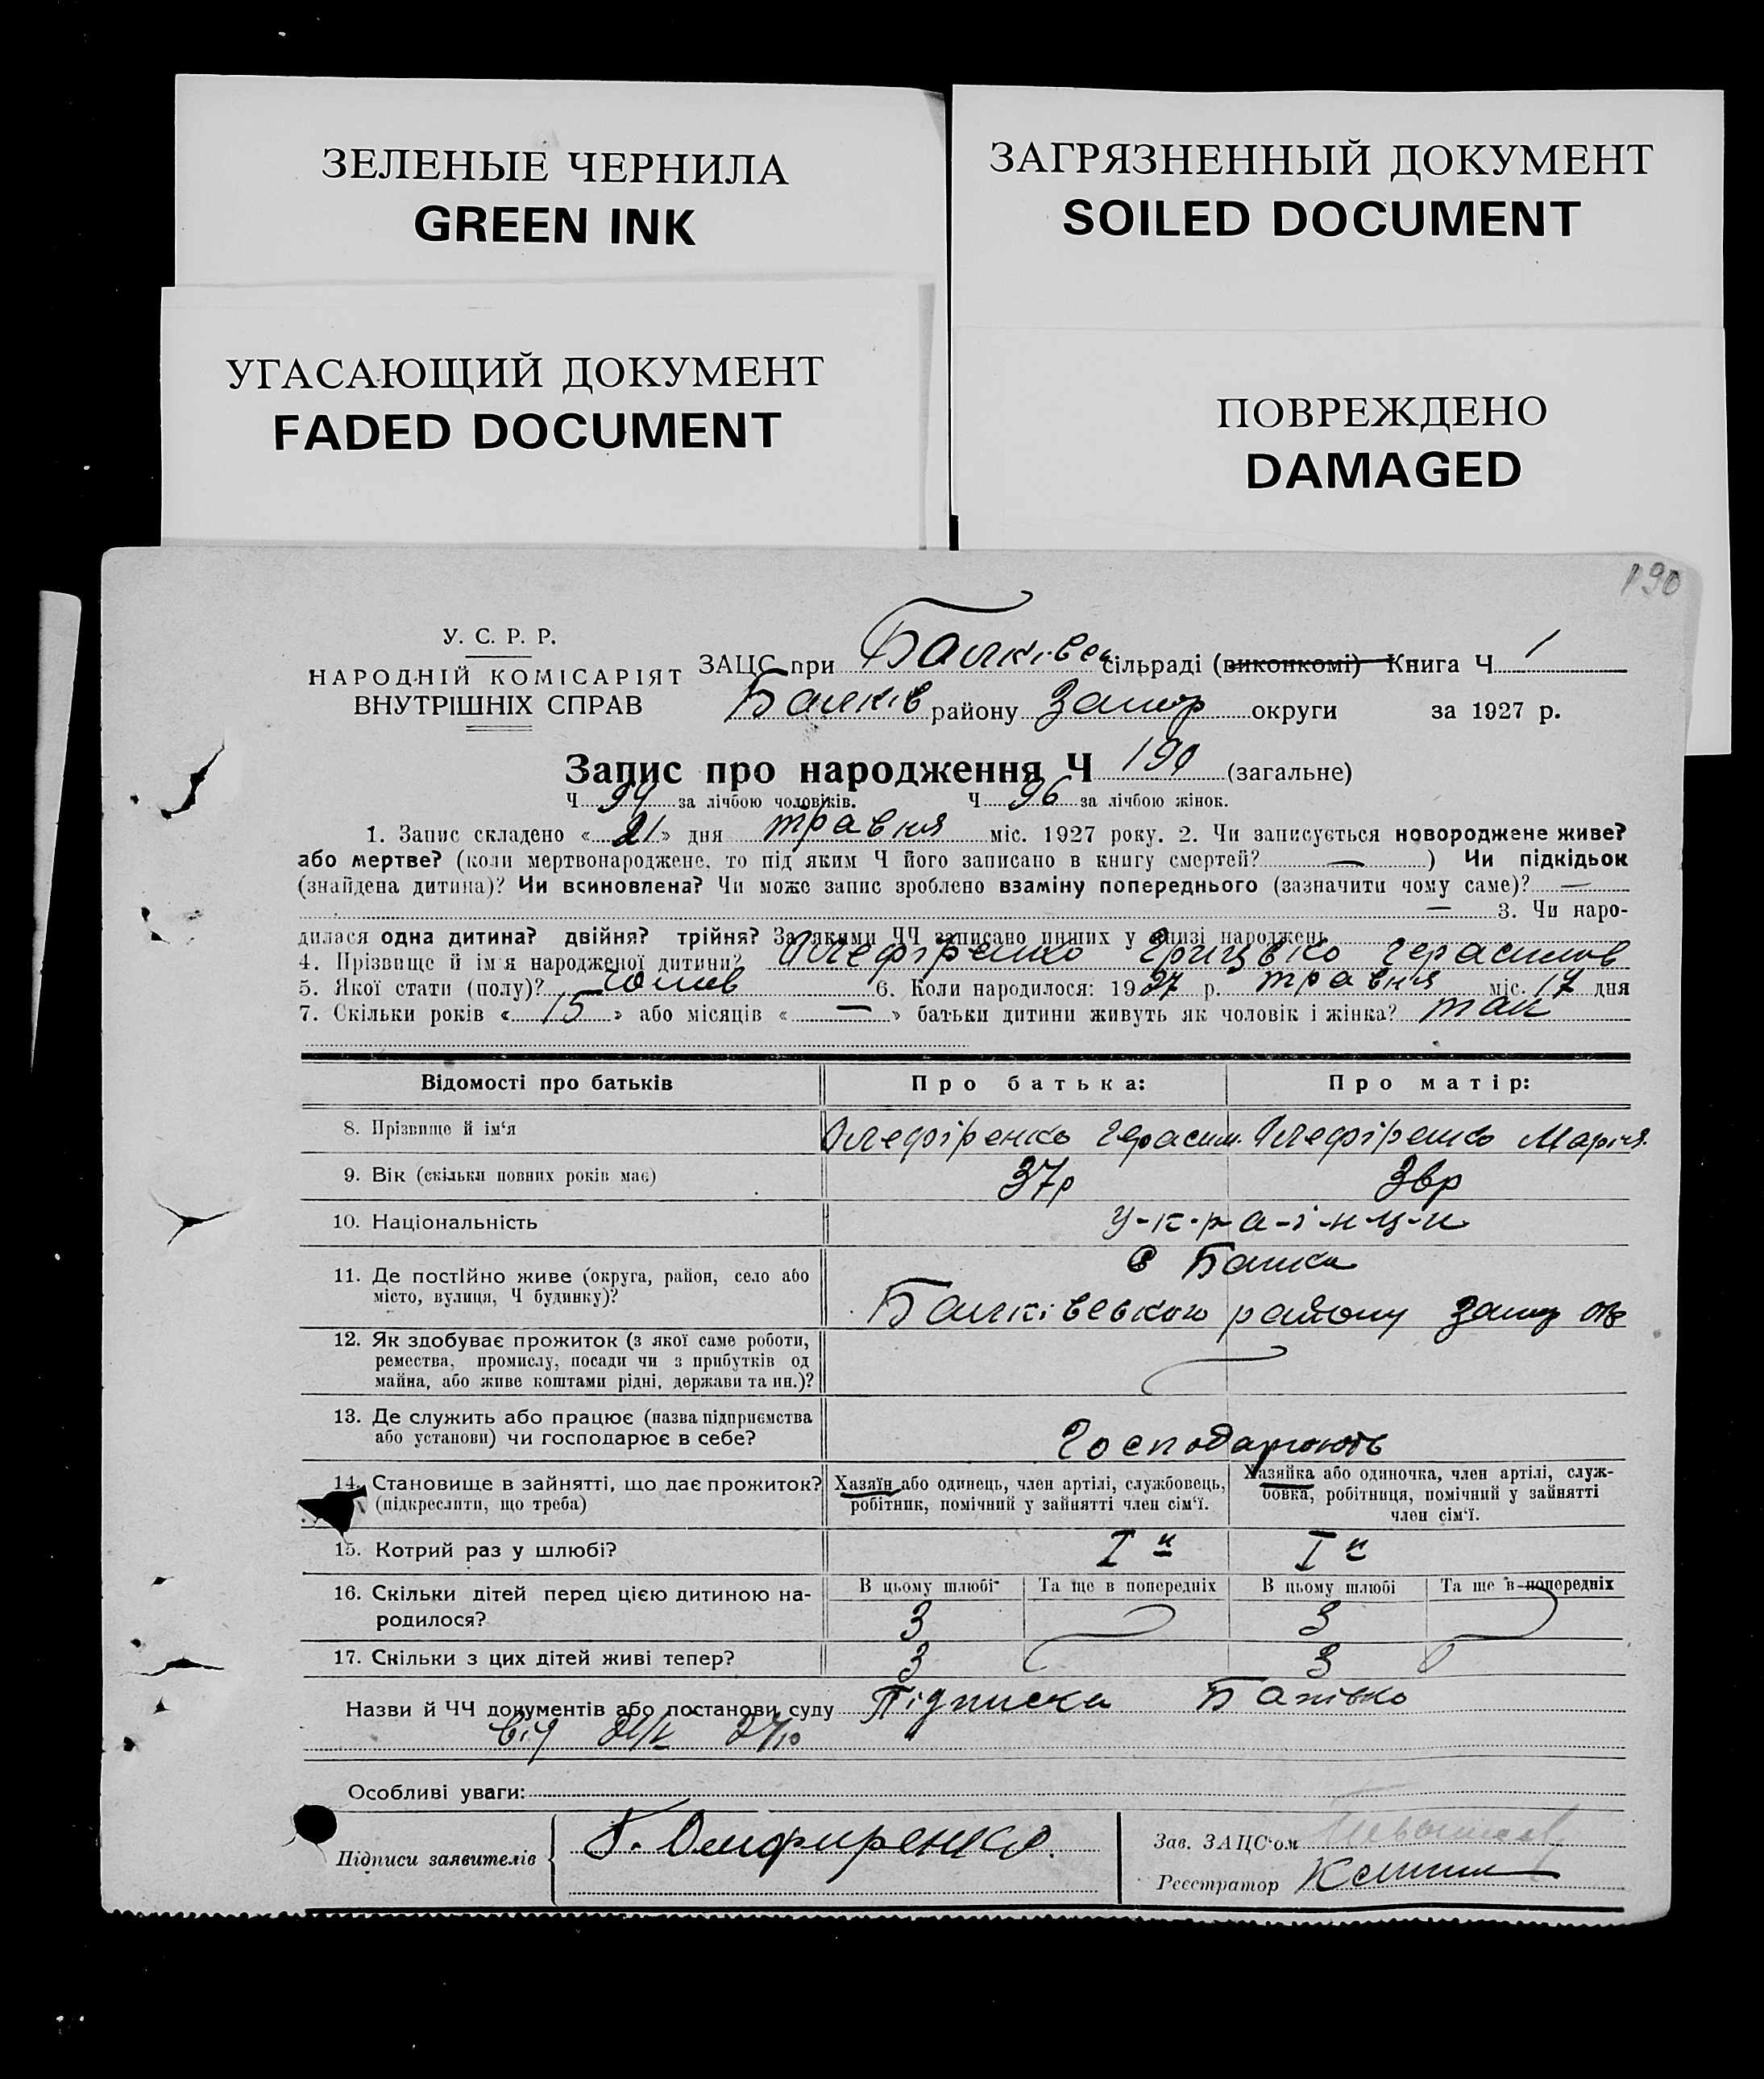 ЗЕЛЕНЫЕ ЧЕРНИЛА
GREEN INK
ЗАГРЯЗНЕННЫЙ ДОКУМЕНТ
SOILED DOCUMENT
УГАСАЮЩИЙ ДОКУМЕНТ
FADED DOCUMENT
ПОВРЕЖДЕНО
DAMAGED
190
У. С. Р. Р.
НАРОДНІЙ КОМІСАРІЯТ
ВНУТРІШНІХ СПРАВ
ЗАЦС при сільраді (виконкомі) Книга Ч 1
Балків району Запор округи за 1927 р.
Запис про народження Ч 190 (загальне)
Ч 94 за лічбою чоловіків. Ч 96 за лічбою жінок.
1. Запис складено « 21 » дня травня міс. 1927 року. 2. Чи записується новороджене живе?
або мертве? (коли мертвонароджене, то під яким Ч його записано в книгу смертей? — ) Чи підкідьок
(знайдена дитина)? Чи всиновлена? Чи може запис зроблено взаміну попереднього (зазначити чому саме)? —
— 3. Чи наро-
дилася одна дитина? двійня? трійня? За якими ЧЧ записано инших у книзі народжень
4. Прізвище й ім'я народженої дитини? Олефіренко Грицько Герасимов
5. Якої стати (полу)? 6. Коли народилося: 1927 р. травня міс. 17 дня
7. Скільки років « 15 » або місяців « — » батьки дитини живуть як чоловік і жінка? так
Відомості про батьків Про батька: Про матір:
8. Прізвище й ім'я Олефіренко Герасим. Олефіренко Марія.
9. Вік (скільки повних років має) 37р 36р
10. Національність У-к-р-а-ї-н-ц-и
11. Де постійно живе (округа, район, село або
місто, вулиця, Ч будинку)?
с Балки
Балківського району Запор окр
12. Як здобуває прожиток (з якої саме роботи,
ремества, промислу, посади чи з прибутків од
майна, або живе коштами рідні, держави та ин.)?
13. Де служить або працює (назва підприємства
або установи) чи господарює в себе?
Господарюють
14. Становище в зайнятті, що дає прожиток?
(підкреслити, що треба)
Хазяїн або одинець, член артілі, службовець,
робітник, помічний у зайнятті член сім'ї.
Хазяйка або одиночка, член артілі, служ-
бовка, робітниця, помічний у зайнятті
член сім'ї.
15. Котрий раз у шлюбі? I й I й
16. Скільки дітей перед цією дитиною на-
родилося?
В цьому шлюбі Та ще в попередніх В цьому шлюбі Та ще в попередніх
3 3
17. Скільки з цих дітей живі тепер? 3 3
Назви й ЧЧ документів або постанови суду Підписка Батько
від 21/V
Особливі уваги:
Підписи заявителів Г. Олифиренко.
Зав. ЗАЦС'ом
Реєстратор